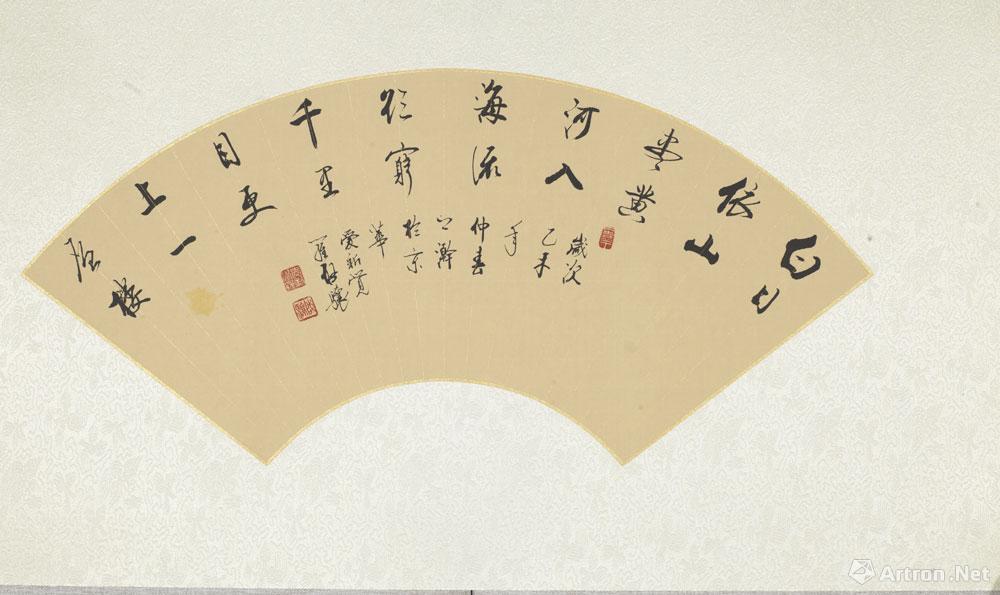 白日
依山
盡黄
河入
海流
欲窮
千里
目更
上一
層樓
歲次
乙未
年
仲春
上澣
於京
華
愛新覺
羅啟驤
Artron.Net